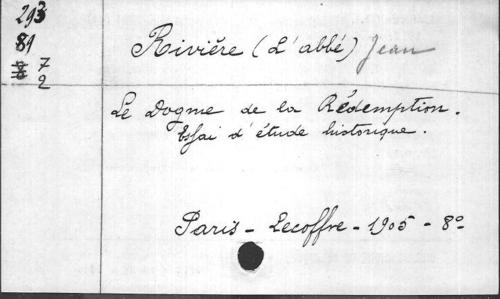 293
81
7
2
Rivière (L'abbé) Jean
Le Dogme de la Rédemption.
Essai d'étude historique.
Paris - Lecoffre - 1905 - 8º